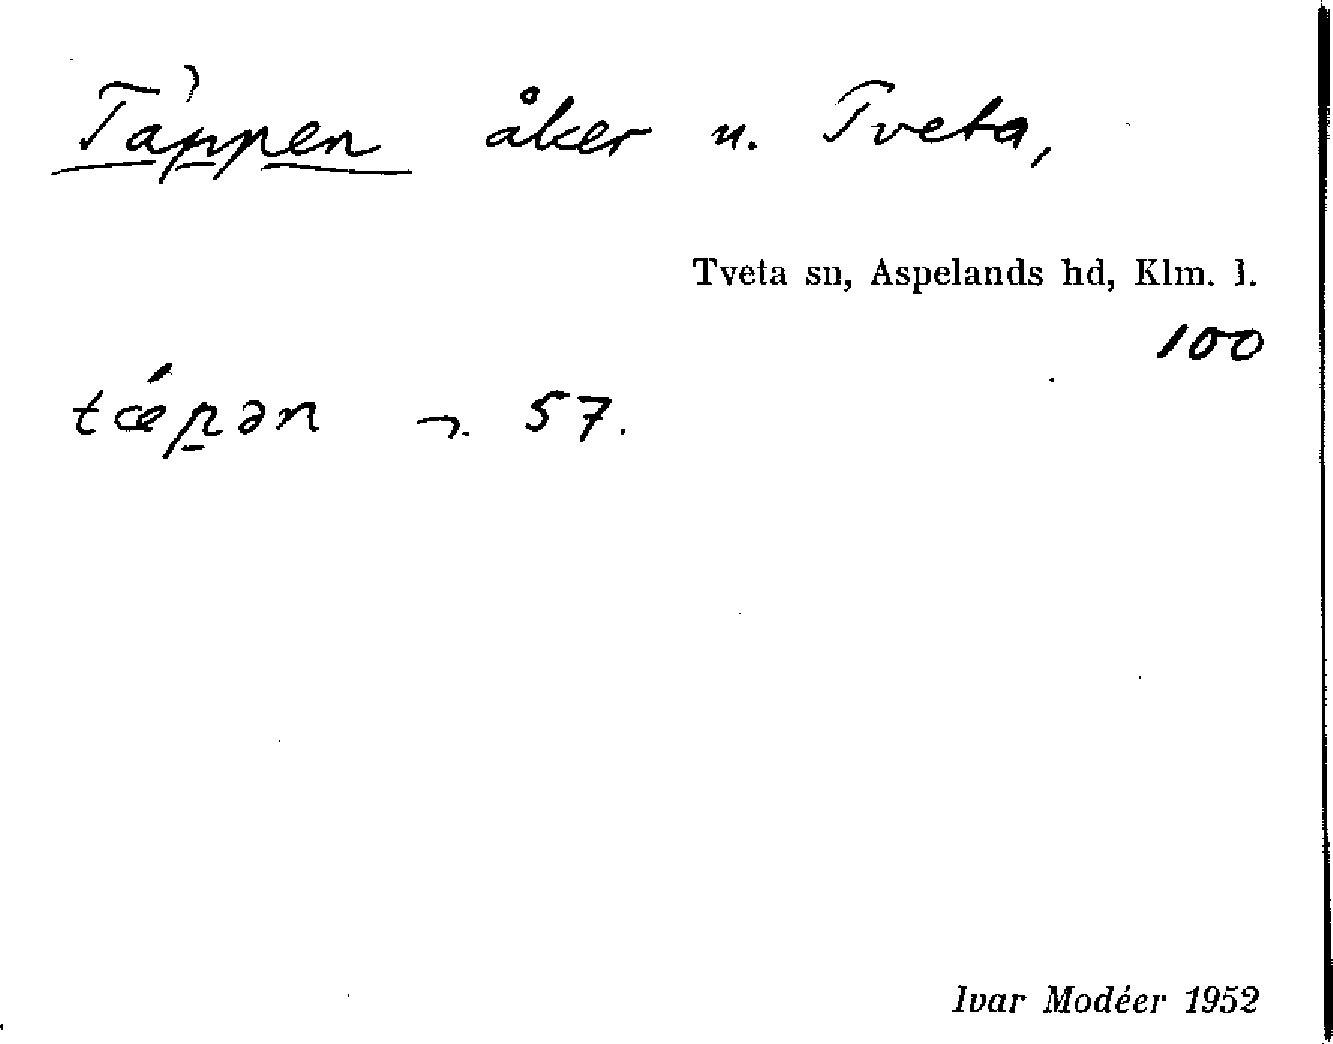 Täppen åker u. Tveta,
Tveta sn, Aspelands hd, Klm. l.
100
tǽp̱ən ¬. 57.
Ivar Modéer 1952